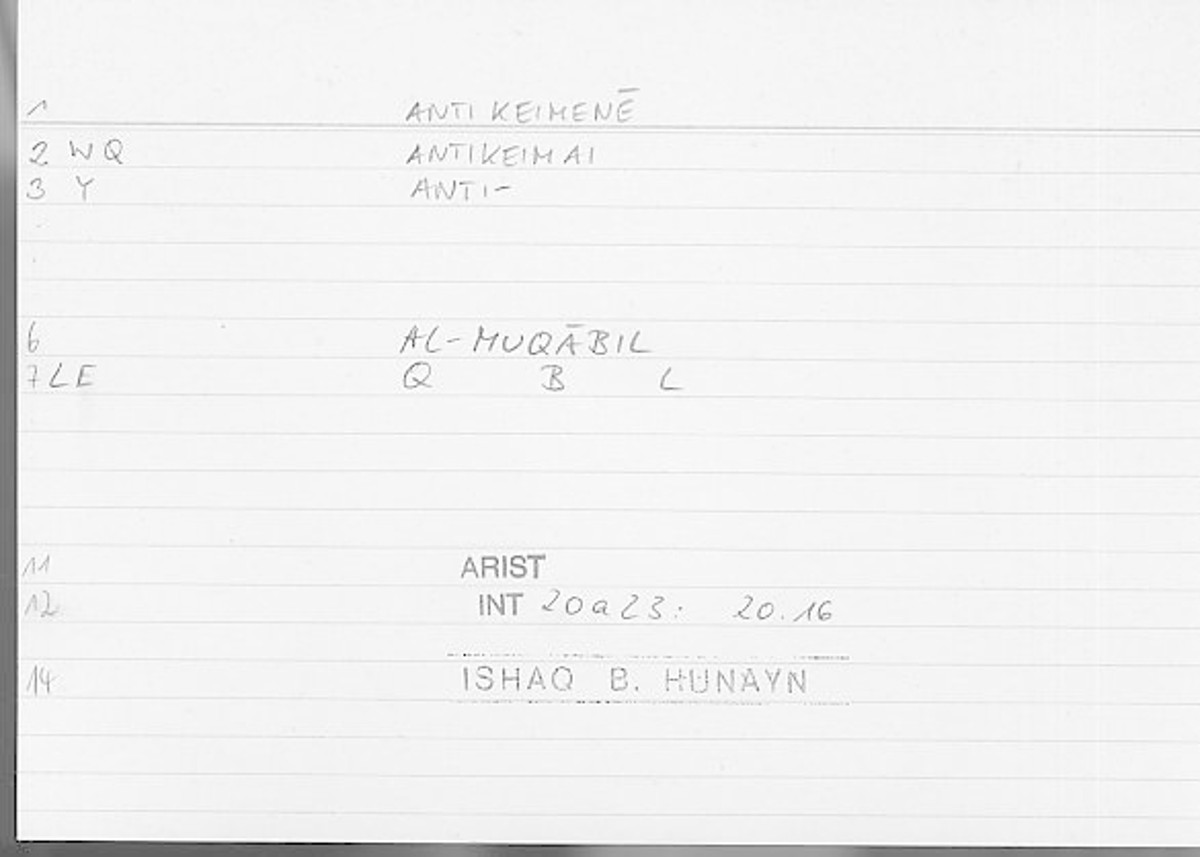 1 ANTIKEIMENĒ
2 WQ ANTIKEIMAI
3 Y ANTI-
6 AL-MUQĀBIL
7 LE Q B L
11 ARIST
12 INT 20a23: 20.16
14 ISHAQ B. HUNAYN